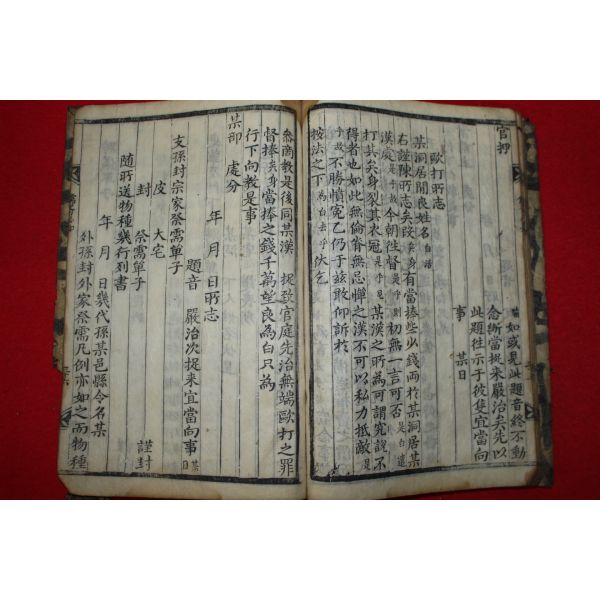 官押
如或見此題音終不動
念所當捉来嚴治矣先以
此題往示于彼隻宜當向
事 某日
歐打所志
某洞居閒良姓名白活
右謹陳所志矣段矣身有當捧些少錢兩於某洞居某
漢處是乎故今朝徃督是乎則初無一言可否是白遣
打矣身裂其衣冠是乎見某漢之所為可謂究說不
得者也如此無倫脊無忌憚之漢不可以私力抵敵是
乎故不勝憤寃乙仍于玆敢仰訴於
按法之下為白去乎伏乞
叅商教是後同某漢 捉致官庭先治無端歐打之罪
督捧矣身當捧之錢千萬望良為白只為
行下向教是事
某部 處分
年 月 日所志
題音 嚴治次捉来宜當向事 某日
支孫封宗家祭需單子
皮 大宅
封 祭需單子 謹封
随所送物種幾行列書
年 月 日幾代孫某邑縣令名某
外孫封外家祭需凡例亦如之而物種